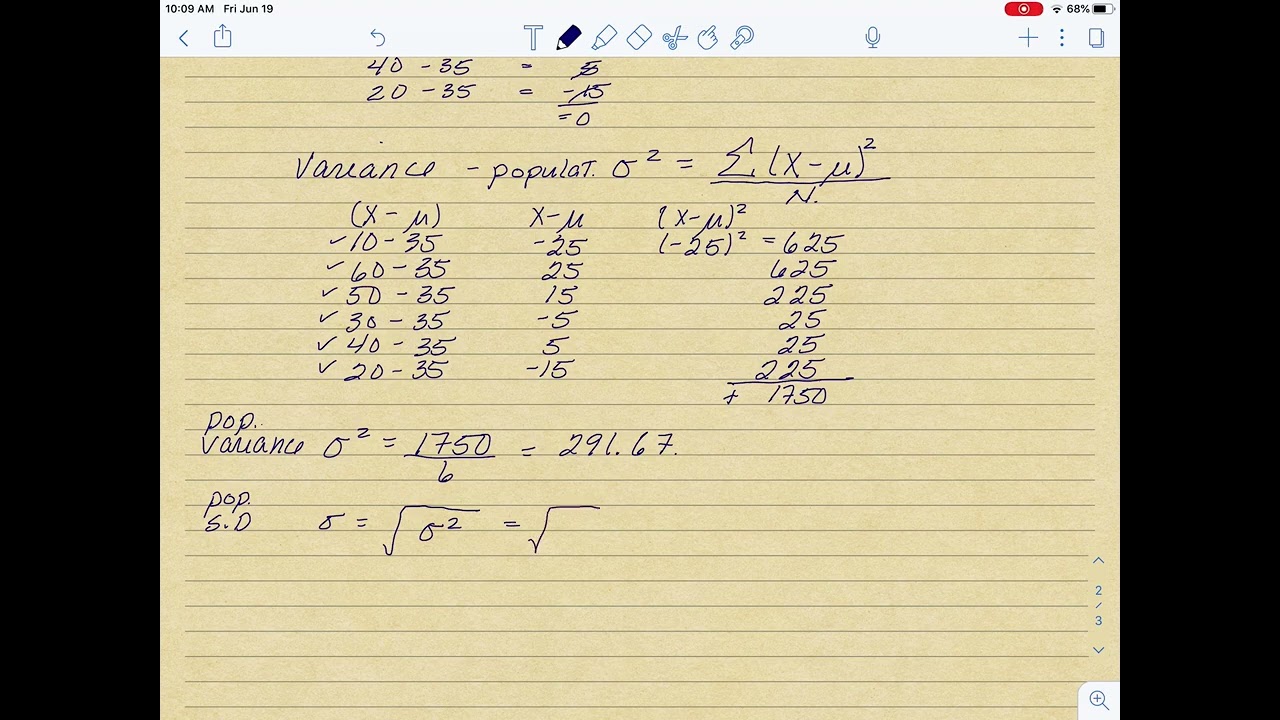 10:09 AM Fri Jun 19 68%
T
40 - 35 = 5
20 - 35 = -15
= 0
Variance - populat. σ² = Σ(X-μ)²
N.
(X-μ) X-μ (X-μ)²
✓10-35 -25 (-25)² = 625
✓60-35 25 625
✓50-35 15 225
✓30-35 -5 25
✓40-35 5 25
✓20-35 -15 225
+ 1750
pop.
variance σ² = 1750 = 291.67.
6
pop.
S.D σ = √σ² = √
2
/
3